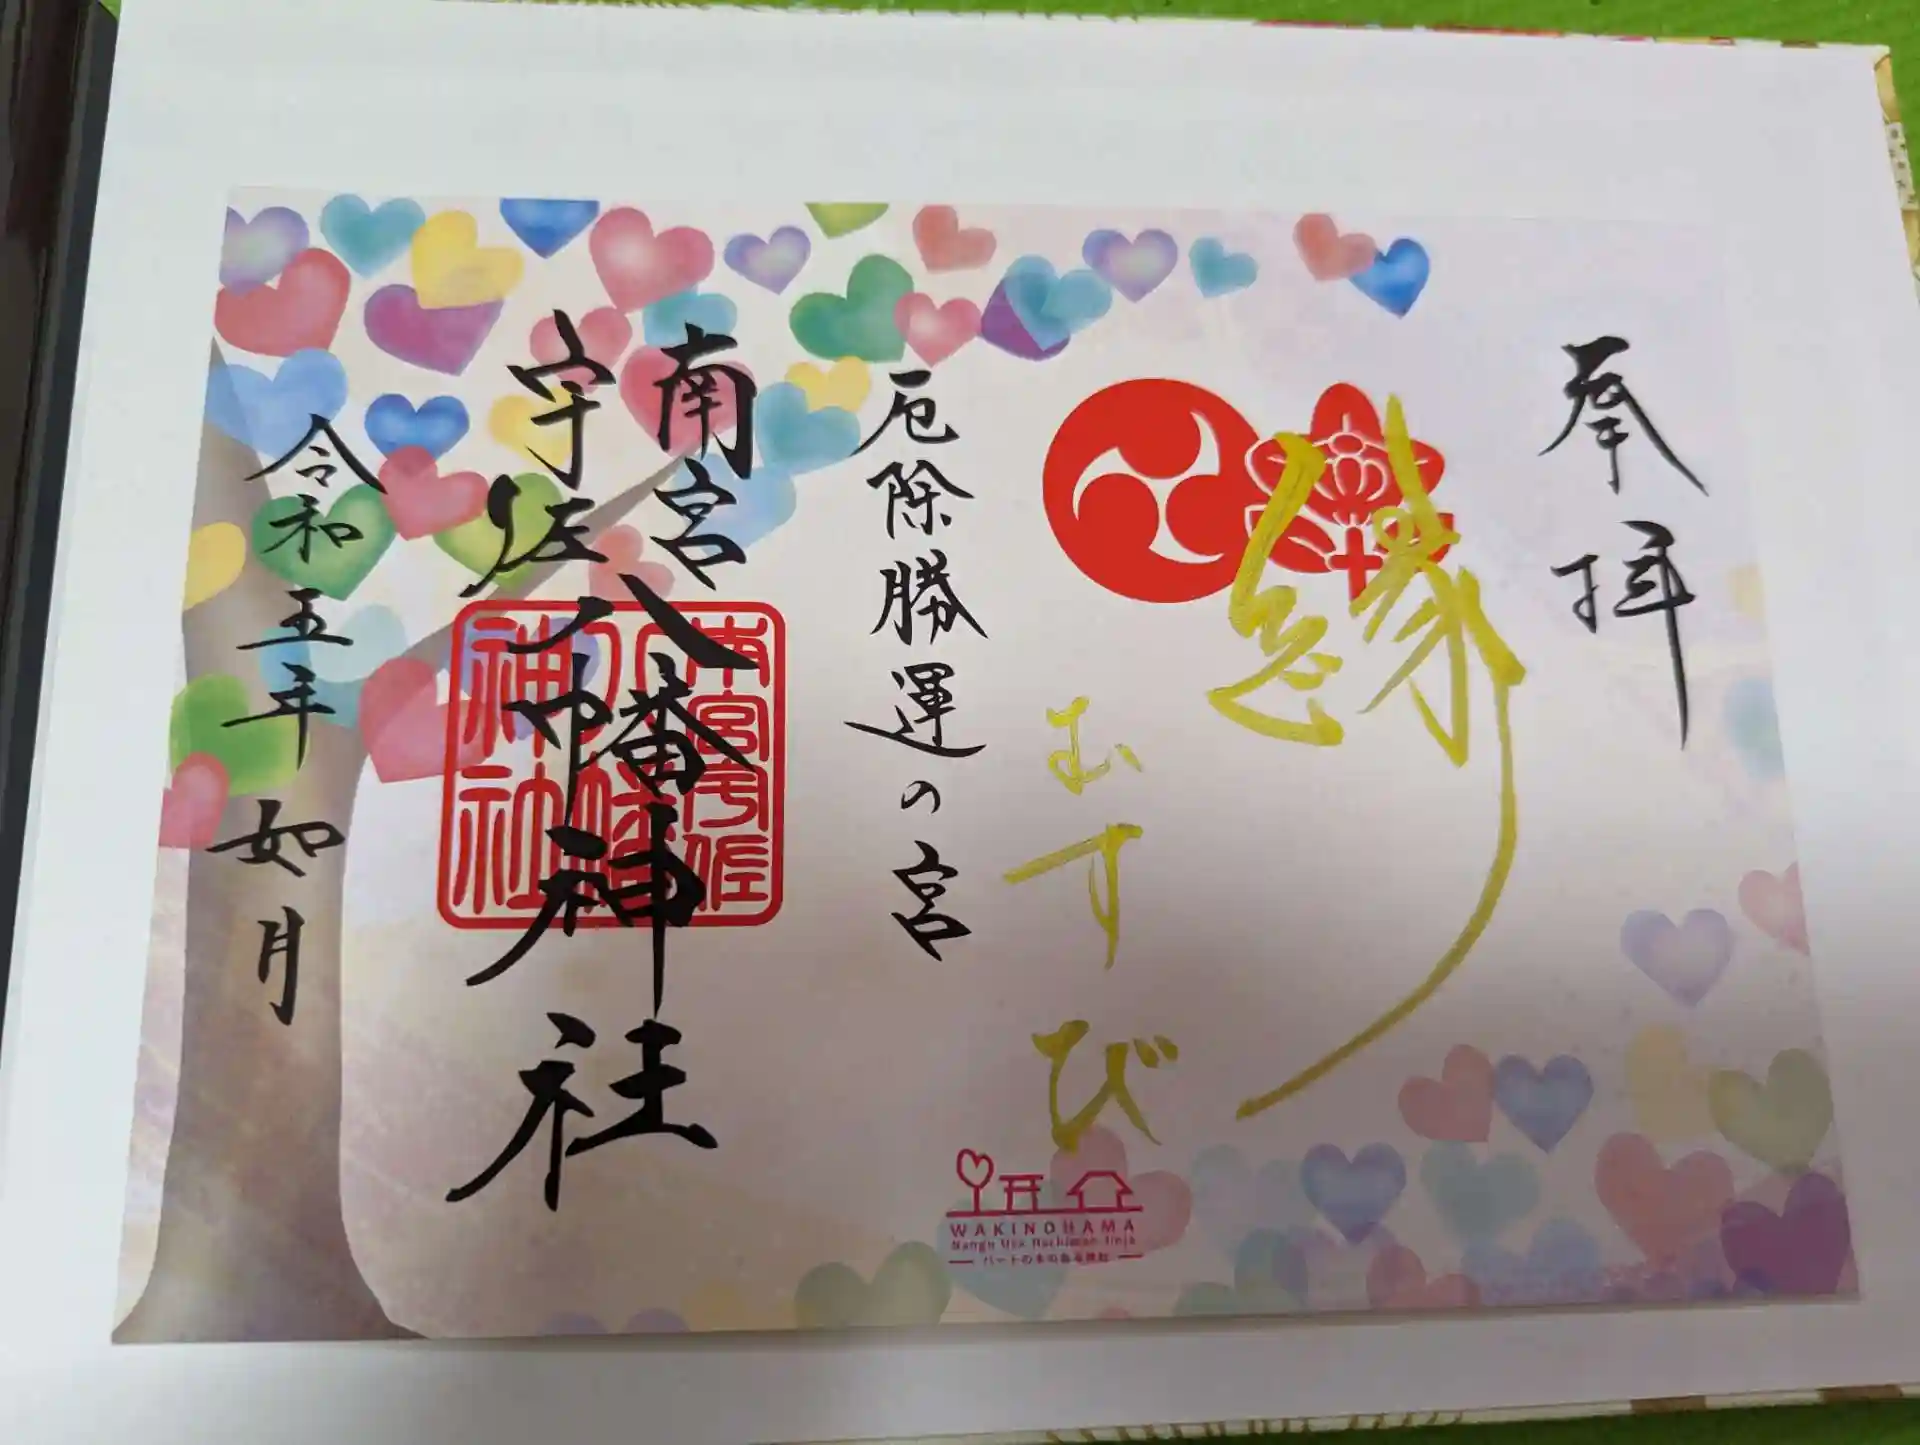 奉拝
縁
むすび
厄除勝運の宮
南宮
宇佐
八幡神社
令和五年 如月
WAKINOHAMA
Nangu Usa Hachiman Jinja
ハートの木のある神社